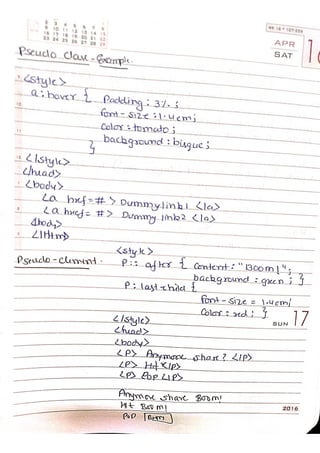 APR
SAT
Pseudo Class - Example.
<style>
a:hover { Padding: 3%;
font-size: 1.4cm;
Color: tomato;
background: bisque;
}
</style>
</head>
<body>
<a href=# > Dummy link1 </a>
<a href= #> Dummy link2 </a>
</body>
</Html>
<style>
Pseudo-element. P:: after { Content: "Boom!";
background: green; }
P: last-child {
font-size = 1.4cm;
Color: red; }
17
SUN
</style>
</head>
<body>
<P> Anymore share? </P>
<P> </P>
<P> Pop </P>
Anymore share Boom!
Boom!
Pop Boom
2016